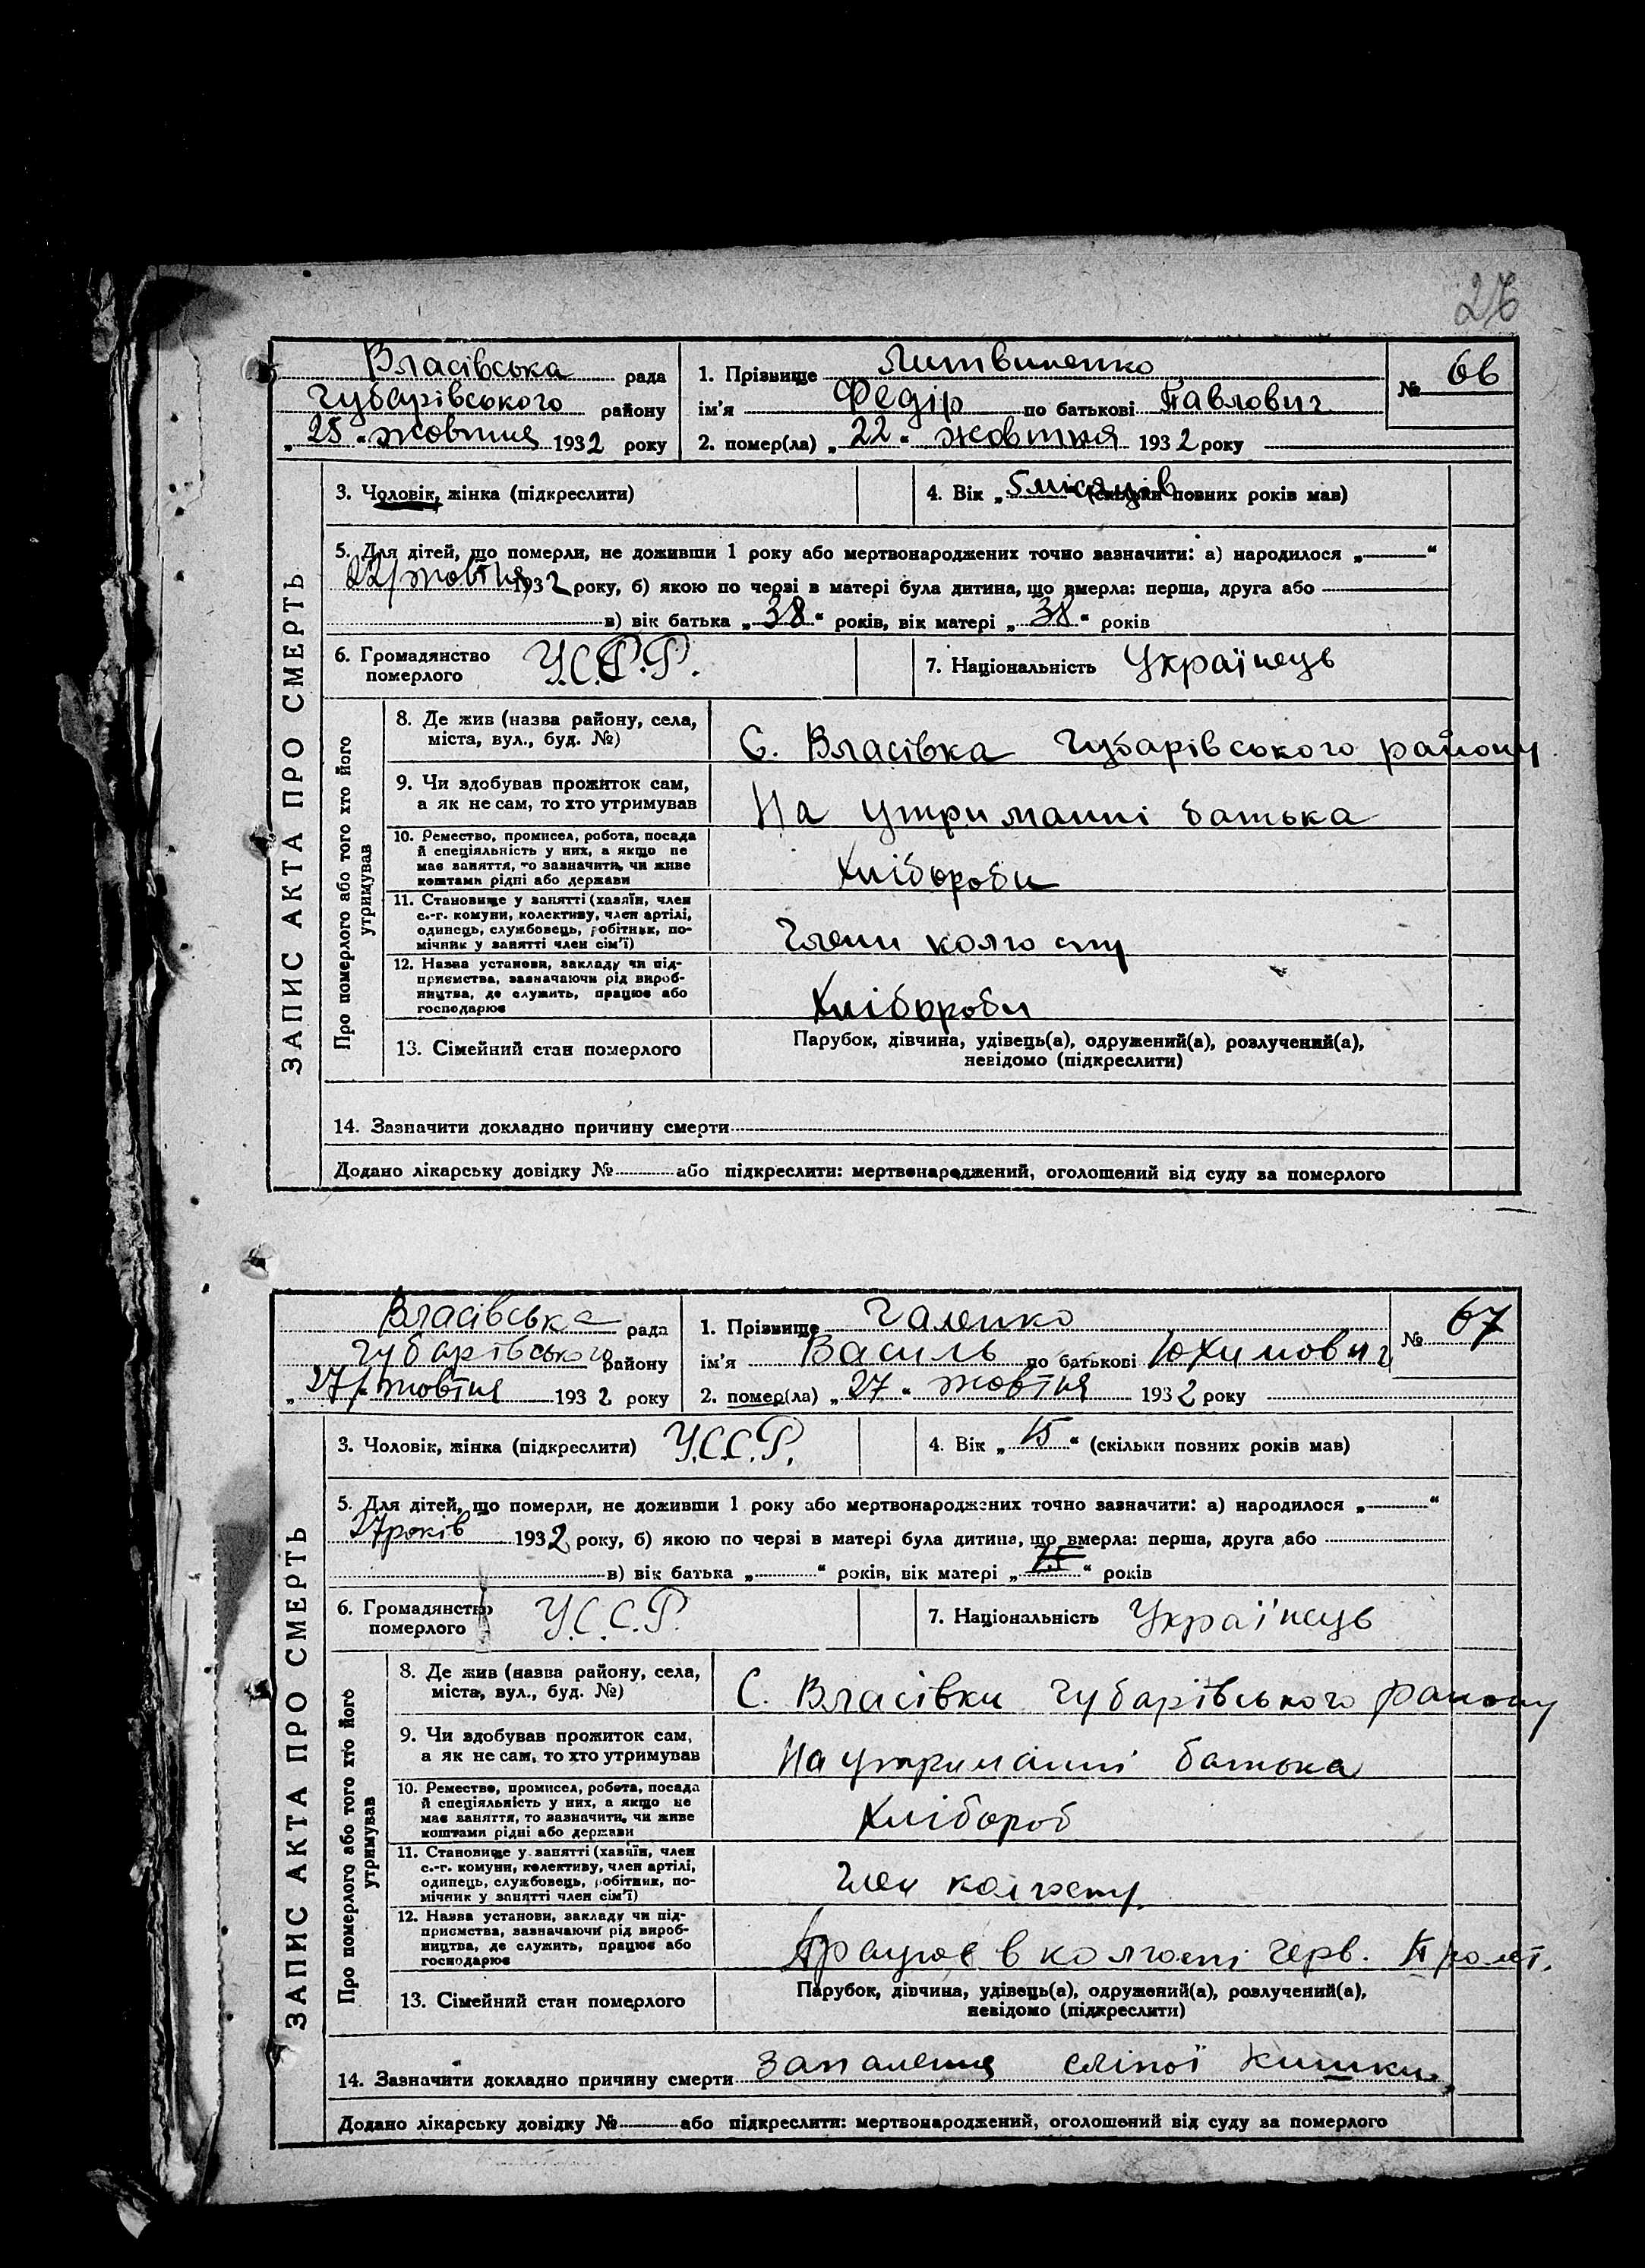 26
Власівська рада
Губарівського району
„ 25 “ жовтня 1932 року
1. Прізвище Литвиненко
ім'я Федір по батькові Павлович
2. помер(ла) „ 22 “ жовтня 1932 року
№ 66
ЗАПИС АКТА ПРО СМЕРТЬ
3. Чоловік, жінка (підкреслити)
4. Вік „ 5 місяців (скільки повних років мав)
5. Для дітей, що померли, не доживши 1 року або мертвонароджених точно зазначити: а) народилося „ “
22/жовтня 1932 року, б) якою по черзі в матері була дитина, що вмерла: перша, друга або
в) вік батька „ 38 “ років, вік матері „ 38 “ років
6. Громадянство
померлого У.С.С.Р.
7. Національність Українець
Про померлого або того хто його
утримував
8. Де жив (назва району, села,
міста, вул., буд. №)
С. Власівка Губарівського району
9. Чи здобував прожиток сам,
а як не сам, то хто утримував
На утриманні батька
10. Ремество, промисел, робота, посада
й спеціяльність у них, а якщо не
має заняття, то зазначити, чи живе
коштами рідні або держави
Хлібороби
11. Становище у занятті (хазяїн, член
с.-г. комуни, колективу, член артілі,
одинець, службовець, робітник, по-
мічник у занятті член сім'ї)
Члени колгоспу
12. Назва установи, закладу чи під-
приємства, зазначаючи рід вироб-
ництва, де служить, працює або
господарює
Хлібороби
13. Сімейний стан померлого
Парубок, дівчина, удівець(а), одружений(а), розлучений(а),
невідомо (підкреслити)
14. Зазначити докладно причину смерти
Додано лікарську довідку № або підкреслити: мертвонароджений, оголошений від суду за померлого
Власівська рада
Губарівського району
„ 27/ “ жовтня 1932 року
1. Прізвище Галенко
ім'я Василь по батькові Юхимович
2. помер(ла) „ 27 “ жовтня 1932 року
№ 67
ЗАПИС АКТА ПРО СМЕРТЬ
3. Чоловік, жінка (підкреслити) У.С.С.Р.
4. Вік „ 15 “ (скільки повних років мав)
5. Для дітей, що померли, не доживши 1 року або мертвонароджених точно зазначити: а) народилося „ “
27 років 1932 року, б) якою по черзі в матері була дитина, що вмерла: перша, друга або
в) вік батька „ “ років, вік матері „ 15 “ років
6. Громадянство
померлого У.С.С.Р.
7. Національність Українець
Про померлого або того хто його
утримував
8. Де жив (назва району, села,
міста, вул., буд. №)
С. Власівки Губарівського району
9. Чи здобував прожиток сам,
а як не сам, то хто утримував
На утриманні батька
10. Ремество, промисел, робота, посада
й спеціяльність у них, а якщо не
має заняття, то зазначити, чи живе
коштами рідні або держави
Хлібороб
11. Становище у занятті (хазяїн, член
с.-г. комуни, колективу, член артілі,
одинець, службовець, робітник, по-
мічник у занятті член сім'ї)
Член колгоспу
12. Назва установи, закладу чи під-
приємства, зазначаючи рід вироб-
ництва, де служить, працює або
господарює
Працює в колгоспі Черв. Пролет.
13. Сімейний стан померлого
Парубок, дівчина, удівець(а), одружений(а), розлучений(а),
невідомо (підкреслити)
14. Зазначити докладно причину смерти запалення сліпої кишки
Додано лікарську довідку № або підкреслити: мертвонароджений, оголошений від суду за померлого